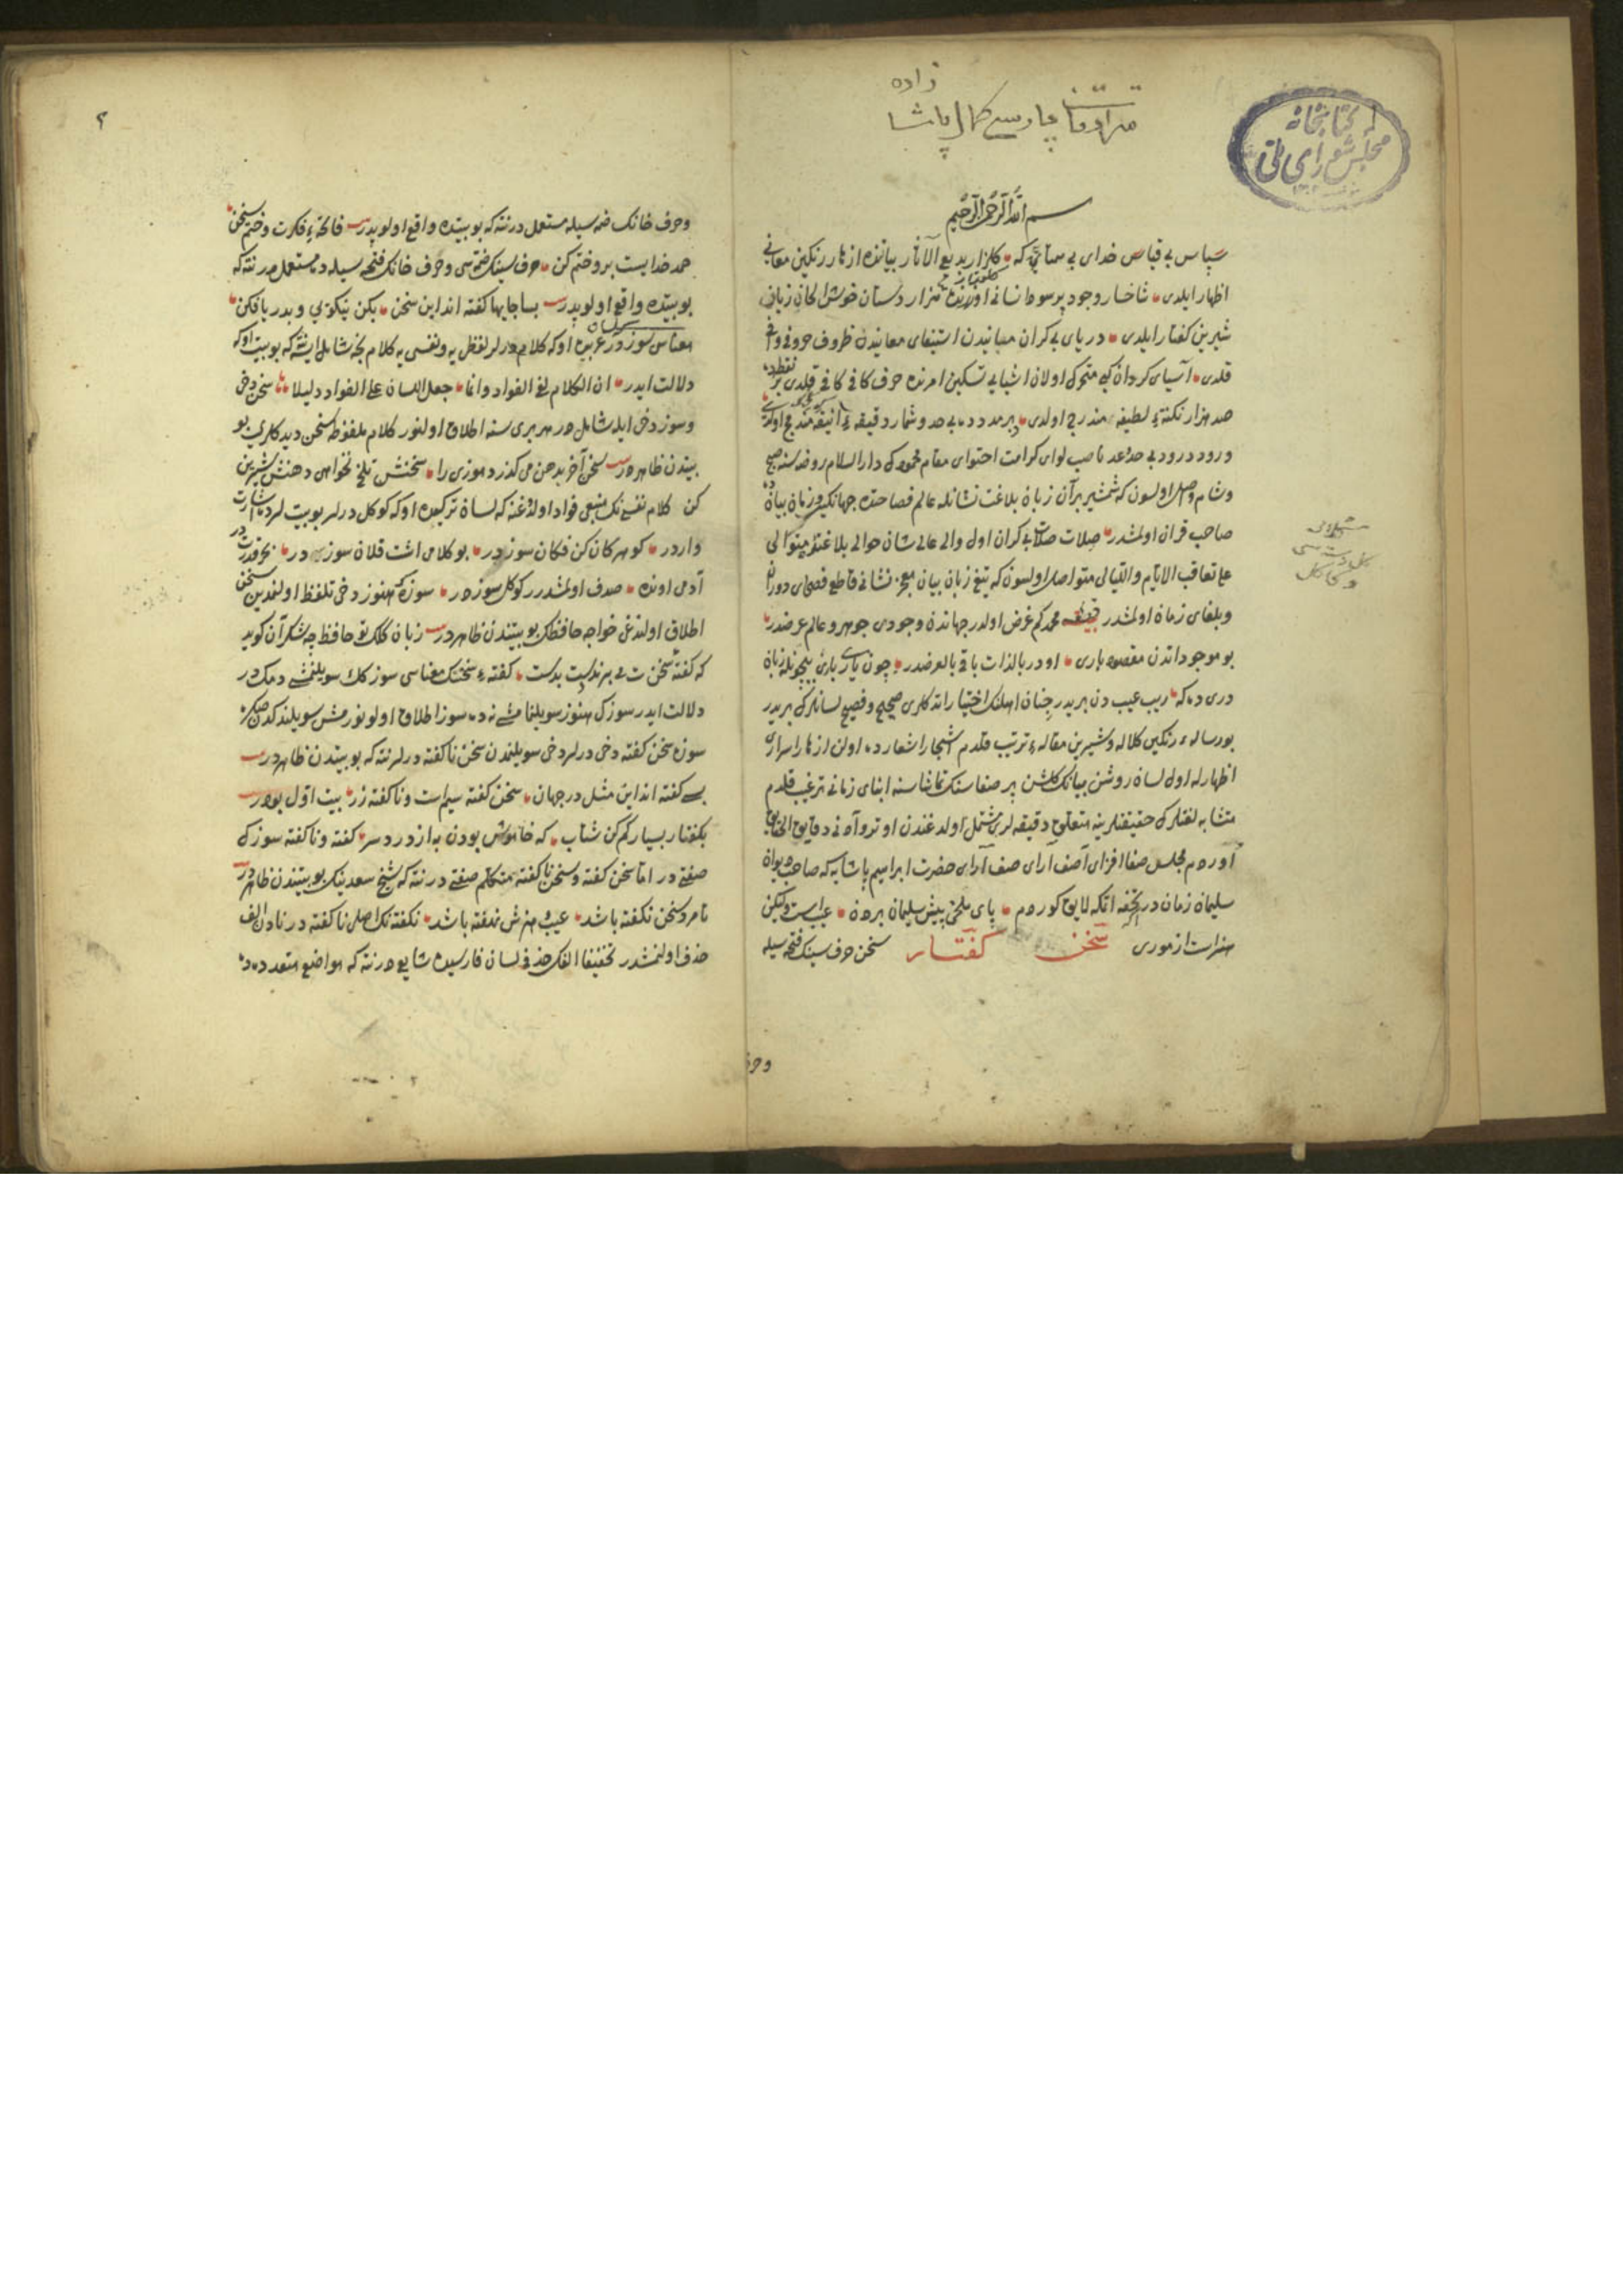 زاده
کمال پاشا
کتابخانه
مجلس شورای ملی
بسم الله الرحمن الرحیم
سپاس بی قیاس خدای بی همتایه که کلزار بدیع الآثار بیانده ازهار رنکین معانی
اظهار ایلدی شاخسار وجود پر سود انسانی اوزره هزار دستان خوش الحان زبانی
شیرین کفتار ایلدی دریای بی کران مبانیدن استیفای معانیده ظروف حروفی وافی
قلدی آسیای کردان کبی متحرک اولان اشیایی تسکین امرنده حرف کافی کافی قلدی بر نقطه ده
صد هزار نکتهٔ لطیفه مندرج اولدی بی حد و شمار دقیقهٔ انیقه مندمج اولدی
ورود درود بی حد و عد ناصب لوای کرامت احتوای مقام محمودک دار السلام روضه سنه صبح
وشام واصل اولسون که شمشیر بران زبان بلاغت نشانله عالم فصاحتده جهانکیر و زبان بیانده
صاحب قران اولمشدر صلات صلات بی کران اول والی عالی شان حوالی بلاغته متوالی
علی تعاقب الایام واللیالی متواصل اولسون که تیغ زبان بیان معجز نشانی قاطع فصحای دوران
وبلغای زمان اولمشدر محمد کم غرض اولدر جهاندن وجودی جوهر و عالم عرضدر
بو موجوداتدن مقصود باری اودر بالذات باقی بالعرضدر چون یاری باری بیچونله زبان
دری ده که ریب عیب دن بریدر جنان اهلنک اختیار اتدکلری صحیح و فصیح لسانلرک بریدر
بو رساله رنکین کلاله و شیرین مقاله ترتیب قلدم اشجار اشعارده اولن ازهار اسراری
اظهارله اول لسان روشن بیانک کلشن پر صفاسنک تماشاسنه ابنای زمانی ترغیب قلدم
متشابه لغتلرک حقیقتلرینه متعلق دقیقه لری مشتمل اولدغندن اوترو آدنی دقایق الحقایق
اوردم مجلس صفا افزای آصف آرای صف آرای حضرت ابراهیم پاشایه که صاحب دیوان
سلیمان زمان در تحفه اتمکه لایق کوردم پای ملخی پیش سلیمان بردن عیب است ولیکن
هنر است از موری سخن کفتار سخن حرف سینک فتحه سیله
وحر
۲
وحرف خانک ضمه سیله مستعمل در نته که بو بیتده واقع اولوپدر فاتحهٔ فکرت و ختم سخن
حمد خدایست برو ختم کن حرف سینک ضمه سی وحرف خانک فتحه سیله ده مستعمل در نته که
بو بیتده واقع اولوپدر بسا جایها کفته اند این سخن بکن نیکویی و بدریا فکن
معناسی سوز در لسان عربیده اوکه کلام درلر لفظی یه ونفسی یه کلام بخه شامل ایسه که بو بیت اوکه
دلالت ایدر ان الکلام لفی الفواد وانما جعل اللسان علی الفواد دلیلا سخن دخی
وسوز دخی ایله شامل در هر بری سنه اطلاق اولنور کلام ملفوظه سخن دیدکلری بو
بیتدن ظاهر در سخن آخر بدهن می کذرد موزی را سخنش تلخ نخواهی دهنش شیرین
کن کلام نفسی نک منبعی فواد اولدوغنه که لسان ترکیده اوکه کوکل درلر بو بیتلرده اشارت
واردر کوهر کان کن فکان سوز در بو کلامی اشت قلان سوز در بحر قدرت در
آدمی اونده صدف اولمشدر کوکل سوزه در سوزه که هنوز دخی تلفظ اولنمدین سخن
اطلاق اولندغی خواجه حافظک بو بیتندن ظاهر در زبان کلک تو حافظ چه شکر آن کوید
که کفتهٔ سخنت می برند دست بدست کفتهٔ سخنک معناسی سوزکک سویلنمشی دمک در
دلالت ایدر سوزک هنوز سویلنمامشنه ده سوز اطلاق اولونور مش سویلندکدن صکره
سوزه سخن کفته دخی درلر دخی سویلنمدن سخن ناکفته درلر نته که بو بیتدن ظاهر در
بسی کفته اند این مثل در جهان سخن کفته سیم است و ناکفته زر بیت اول بودر
بکفتار بسیار کم کن شتاب که خاموش بودن به از درد سر کفته و ناکفته سوزک
صفتی در اما سخن کفته و سخن ناکفته متکلم صفتی در نته که شیخ سعدینک بو بیتندن ظاهر در
تا مرد سخن نکفته باشد عیب و هنرش نهفته باشد نکفته نک اصلی ناکفته در نادن الف
حذف اولنمشدر تخفیفا الفک حذفی لسان فارسیده شایع در نته که مواضع متعدده ده